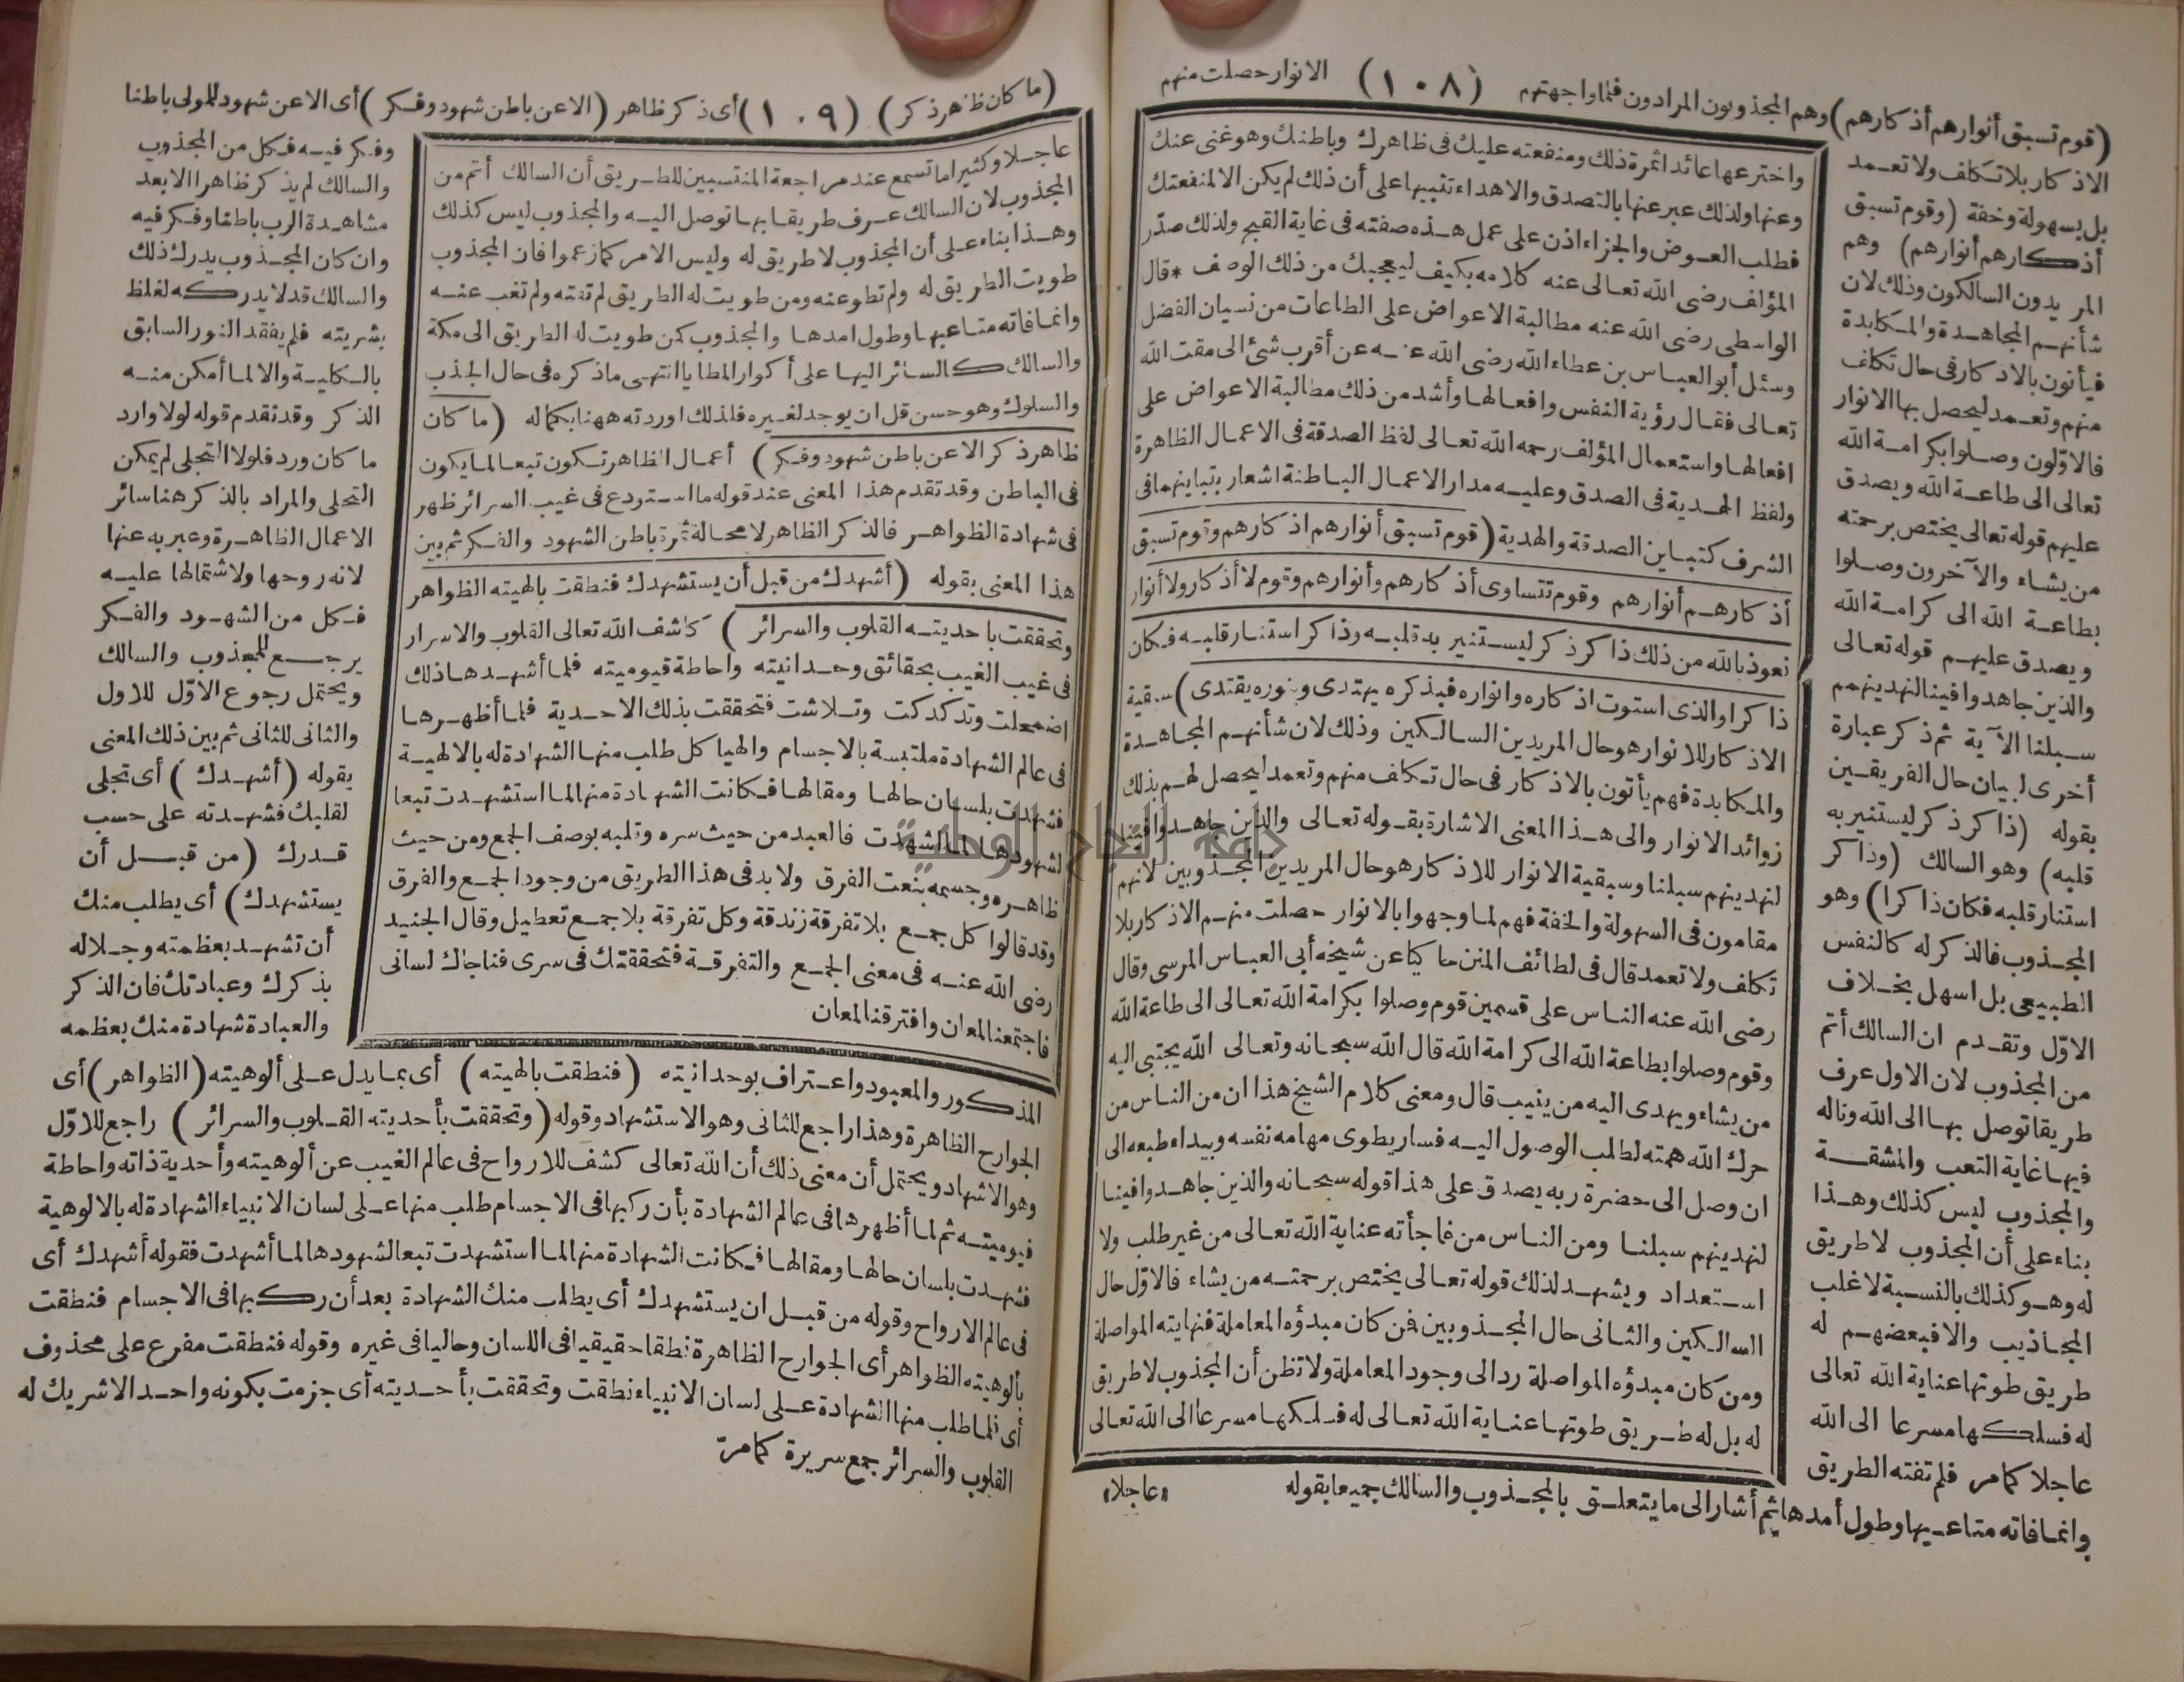 (قوم تسبق أنوارهم أذكارهم) وهم المجذوبون المرادون فلما واجهتهم (١٠٨) الانوار حصلت منهم
الاذكار بلا تكلف ولا تعمد
بل بسهولة وخفة (وقوم تسبق
أذكارهم أنوارهم) وهم
المريدون السالكون وذلك لان
شأنهم المجاهدة والمكابدة
فيأتون بالاذكار فى حال تكلف
منهم وتعمد ليحصل بها الانوار
فالاوّلون وصلوا بكرامة الله
تعالى الى طاعة الله ويصدق
عليهم قوله تعالى يختص برحمته
من يشاء والآخرون وصلوا
بطاعة الله الى كرامة الله
ويصدق عليهم قوله تعالى
والذين جاهدوا فينا لنهدينهم
سبلنا الآية ثم ذكر عبارة
أخرى لبيان حال الفريقين
بقوله (ذاكر ذكر ليستنير به
قلبه) وهو السالك (وذاكر
استنار قلبه فكان ذاكرا) وهو
المجذوب فالذكر له كالنفس
الطبيعى بل اسهل بخلاف
الاوّل وتقدم ان السالك أتم
من المجذوب لان الاول عرف
طريقا توصل بها الى الله وناله
فيها غاية التعب والمشقة
والمجذوب ليس كذلك وهذا
بناء على أن المجذوب لا طريق
له وهو كذلك بالنسبة لاغلب
المجاذيب والا فبعضهم له
طريق طوتها عناية الله تعالى
له فسلكها مسرعا الى الله
عاجلا كما مر فلم تفته الطريق
وانما فاته متاعبها وطول أمدها ثم أشار الى ما يتعلق بالمجذوب والسالك جميعا بقوله
واخترعها عائدا ثمرة ذلك ومنفعته عليك فى ظاهرك وباطنك وهو غنى عنك
وعنها ولذلك عبر عنها بالتصدق والاهداء تنبيها على أن ذلك لم يكن الا لمنفعتك
فطلب العوض والجزاء اذن على عمل هذه صفته فى غاية القبح ولذلك صدّر
المؤلف رضى الله تعالى عنه كلامه بكيف ليعجبك من ذلك الوصف * قال
الواسطى رضى الله عنه مطالبة الاعواض على الطاعات من نسيان الفضل
وسئل أبو العباس بن عطاء الله رضى الله عنه عن أقرب شئ الى مقت الله
تعالى فقال رؤية النفس وافعالها وأشد من ذلك مطالبة الاعواض على
افعالها واستعمال المؤلف رحمه الله تعالى لفظ الصدقة فى الاعمال الظاهرة
ولفظ الهدية فى الصدق وعليه مدار الاعمال الباطنة اشعار بتباينهما فى
الشرف كتباين الصدقة والهدية (قوم تسبق أنوارهم اذكارهم وقوم تسبق
أذكارهم أنوارهم وقوم تتساوى أذكارهم وأنوارهم وقوم لا أذكار ولا أنوار
نعوذ بالله من ذلك ذاكر ذكر ليستنير به قلبه وذاكر استنار قلبه فكان
ذاكرا والذى استوت اذكاره وانواره فبذكره يهتدى وبنوره يقتدى) سبقية
الاذكار للانوار هو حال المريدين السالكين وذلك لان شأنهم المجاهدة
والمكابدة فهم يأتون بالاذكار فى حال تكلف منهم وتعمد ليحصل لهم بذلك
زوائد الانوار والى هذا المعنى الاشارة بقوله تعالى والذين جاهدوا فينا
لنهدينهم سبلنا وسبقية الانوار للاذكار هو حال المريدين المجذوبين لانهم
مقامون فى السهولة والخفة فهم لما وجهوا بالانوار حصلت منهم الاذكار بلا
تكلف ولا تعمد قال فى لطائف المنن حاكيا عن شيخه أبى العباس المرسى وقال
رضى الله عنه الناس على قسمين قوم وصلوا بكرامة الله تعالى الى طاعة الله
وقوم وصلوا بطاعة الله الى كرامة الله قال الله سبحانه وتعالى الله يجتبى اليه
من يشاء ويهدى اليه من ينيب قال ومعنى كلام الشيخ هذا ان من الناس من
حرك الله همته لطلب الوصول اليه فسار يطوى مهامه نفسه وبيداء طبعه الى
ان وصل الى حضرة ربه يصدق على هذا قوله سبحانه والذين جاهدوا فينا
لنهدينهم سبلنا ومن الناس من فاجأته عناية الله تعالى من غير طلب ولا
استعداد ويشهد لذلك قوله تعالى يختص برحمته من يشاء فالاوّل حال
السالكين والثانى حال المجذوبين فمن كان مبدؤه المعاملة فنهايته المواصلة
ومن كان مبدؤه المواصلة رد الى وجود المعاملة ولا تظن أن المجذوب لا طريق
له بل له طريق طوتها عناية الله تعالى له فسلكها مسرعا الى الله تعالى
«عاجلا»
(ما كان ظاهر ذكر) (١٠٩) أى ذكر ظاهر (الا عن باطن شهود وفكر) أى الا عن شهود للمولى باطنا
وفكر فيه فكل من المجذوب
والسالك لم يذكر ظاهرا الا بعد
مشاهدة الرب باطنا وفكر فيه
وان كان المجذوب يدرك ذلك
والسالك قد لا يدركه لغلظ
بشريته فلم يفقد النور السابق
بالكلية والا لما أمكن منه
الذكر وقد تقدم قوله لولا وارد
ما كان ورد فلولا التجلى لم يمكن
التحلى والمراد بالذكر هنا سائر
الاعمال الظاهرة وعبر به عنها
لانه روحها ولاشتمالها عليه
فكل من الشهود والفكر
يرجع للمجذوب والسالك
ويحتمل رجوع الاوّل للاول
والثانى للثانى ثم بين ذلك المعنى
بقوله (أشهدك) أى تجلى
لقلبك فشهدته على حسب
قدرك (من قبل أن
يستشهدك) أى يطلب منك
أن تشهد بعظمته وجلاله
بذكرك وعبادتك فان الذكر
والعبادة شهادة منك بعظمه
عاجلا وكثيرا ما تسمع عند مراجعة المنتسبين للطريق أن السالك أتم من
المجذوب لان السالك عرف طريقا بها توصل اليه والمجذوب ليس كذلك
وهذا بناء على أن المجذوب لا طريق له وليس الامر كما زعموا فان المجذوب
طويت الطريق له ولم تطو عنه ومن طويت له الطريق لم تفته ولم تغب عنه
وانما فاته متاعبها وطول امدها والمجذوب كمن طويت له الطريق الى مكة
والسالك كالسائر اليها على أكوار المطايا انتهى ما ذكره فى حال الجذب
والسلوك وهو حسن قل ان يوجد لغيره فلذلك اوردته ههنا بكماله (ما كان
ظاهر ذكر الا عن باطن شهود وفكر) أعمال الظاهر تكون تبعا لما يكون
فى الباطن وقد تقدم هذا المعنى عند قوله ما استودع فى غيب السرائر ظهر
فى شهادة الظواهر فالذكر الظاهر لا محالة ثمرة باطن الشهود والفكر ثم بين
هذا المعنى بقوله (أشهدك من قبل أن يستشهدك فنطقت بالهيته الظواهر
وتحققت باحديته القلوب والسرائر) كاشف الله تعالى القلوب والاسرار
فى غيب الغيب بحقائق وحدانيته واحاطة قيوميته فلما أشهدها ذلك
اضمحلت وتدكدكت وتلاشت فتحققت بذلك الاحدية فلما أظهرها
فى عالم الشهادة ملتبسة بالاجسام والهياكل طلب منها الشهادة له بالالهية
فشهدت بلسان حالها ومقالها فكانت الشهادة منها لما استشهدت تبعا
لشهودها لما أشهدت فالعبد من حيث سره وقلبه بوصف الجمع ومن حيث
ظاهره وجسمه بنعت الفرق ولا بد فى هذا الطريق من وجود الجمع والفرق
وقد قالوا كل جمع بلا تفرقة زندقة وكل تفرقة بلا جمع تعطيل وقال الجنيد
رضى الله عنه فى معنى الجمع والتفرقة فتحققتك فى سرى فناجاك لسانى
فاجتمعنا لمعان وافترقنا لمعان
المذكور والمعبود واعتراف بوحدانيته (فنطقت بالهيته) أى بما يدل على ألوهيته (الظواهر) أى
الجوارح الظاهرة وهذا راجع للثانى وهو الاستشهاد وقوله (وتحققت بأحديته القلوب والسرائر) راجع للاوّل
وهو الاشهاد ويحتمل أن معنى ذلك أن الله تعالى كشف للارواح فى عالم الغيب عن ألوهيته وأحدية ذاته واحاطة
قيوميته ثم لما أظهرها فى عالم الشهادة بأن ركبها فى الاجسام طلب منها على لسان الانبياء الشهادة له بالالوهية
فشهدت بلسان حالها ومقالها فكانت الشهادة منها لما استشهدت تبعا لشهودها لما أشهدت فقوله أشهدك أى
فى عالم الارواح وقوله من قبل ان يستشهدك أى يطلب منك الشهادة بعد أن ركبها فى الاجسام فنطقت
بألوهيته الظواهر أى الجوارح الظاهرة نطقا حقيقيا فى اللسان وحاليا فى غيره وقوله فنطقت مفرع على محذوف
أى فلما طلب منها الشهادة على لسان الانبياء نطقت وتحققت بأحديته أى جزمت بكونه واحد الا شريك له
القلوب والسرائر جمع سريرة كما مرّ
جامعة النجاح الوطنية